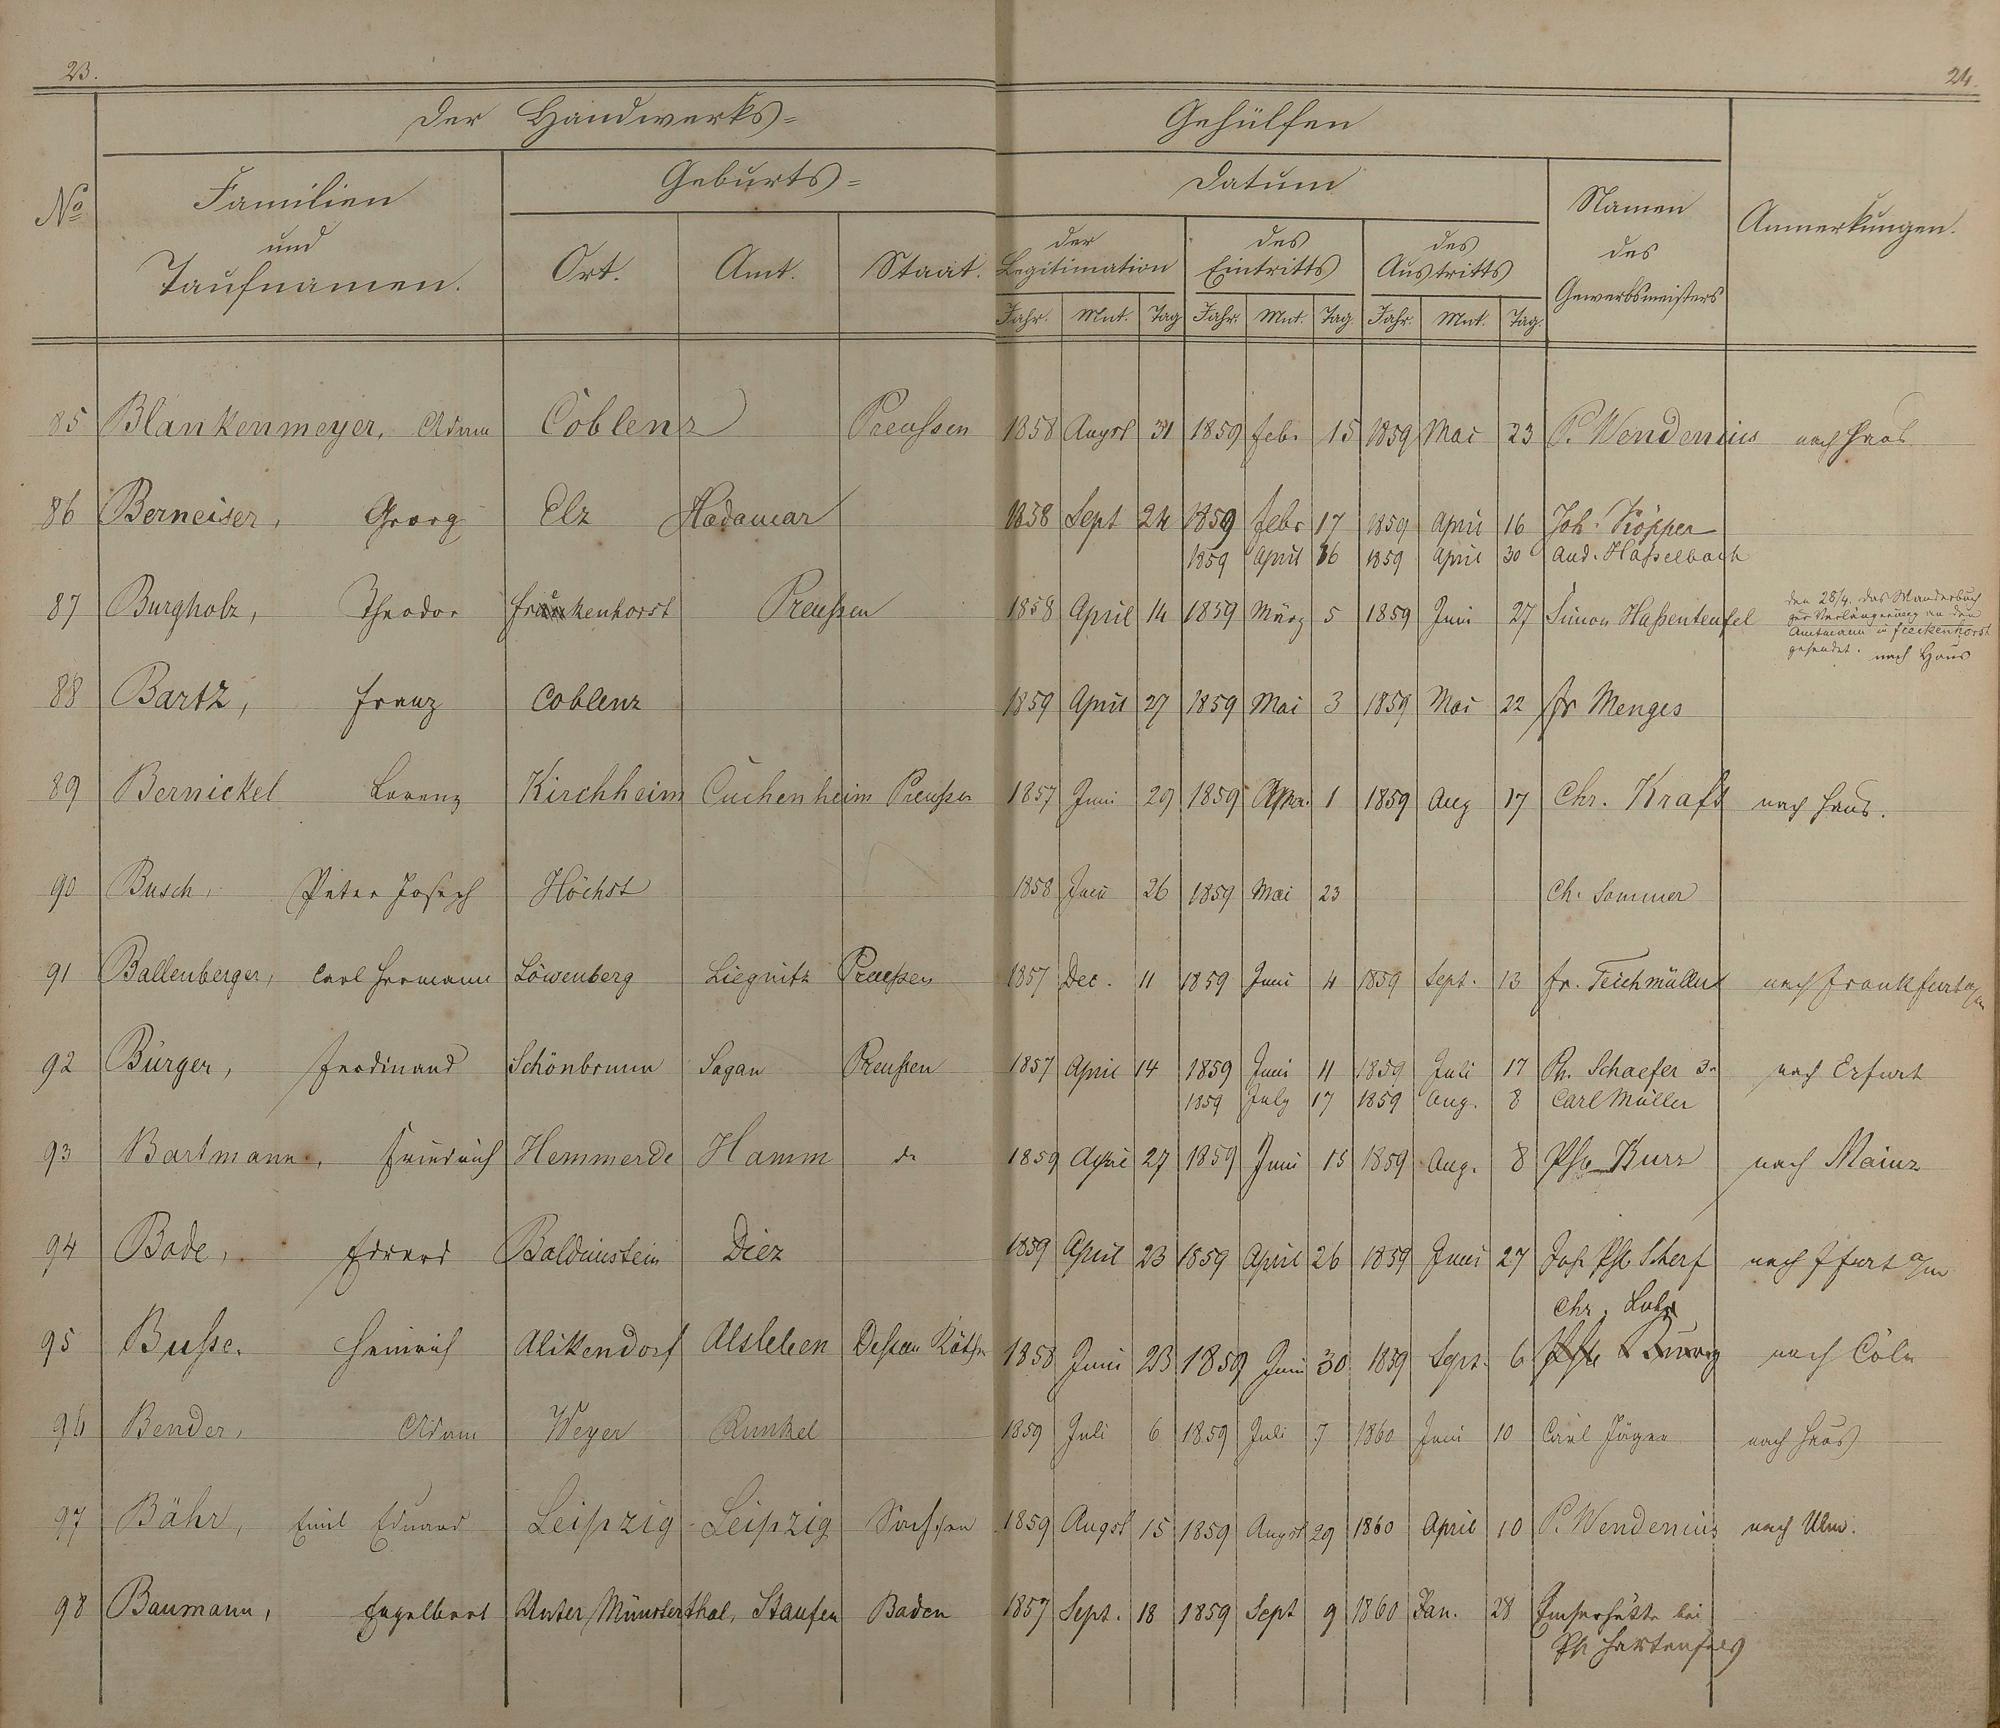 23.
24.
Der Handwerks=
Gehülfen
No
Familien
und
Taufnamen.
Geburts=
Ort.
Amt.
Staat.
Datum
der
Legitimation
des
Eintritts
des
Austritts
Jahr. Mnt. Tag Jahr. Mnt. Tag. Jahr. Mnt. Tag.
Namen
des
Gewerbsmeisters
Anmerkungen.
85 Blankenmeyer, Adam Coblenz Preußen 1858 Augst 31 1859 Febr 15 1859 Mai 23 P. Wendenius nach Haus
86 Berneiser, Georg Elz Hadamar 1858 Sept 24 1859 Febr 17 1859 April 16 Joh. Köpper
1859 April 16 1859 April 30 And. Haßelbach
87 Burgholz, Theodor Preußen 1858 April 14 1859 März 5 1859 Juni 27 Simon Haßenteufel
den 28/4. das Wanderbuch
zur Verlängerung an den
Amtmann in Freckenhorst
gesendet. nach Haus
88 Bartz, Franz Coblenz 1859 April 27 1859 Mai 3 1859 Mai 22 Fr Menges
89 Bernickel Lorenz Kirchheim Cuchenheim Preußen 1857 Juni 29 1859 1 1859 Aug 17 Chr. Kraft nach Haus.
90 Busch, Peter Joseph Höchst 1858 Juni 26 1859 Mai 23 Ch. Sommer
91 Ballenberger, Carl Hermann Löwenberg Liegnitz Preußen 1857 Dec. 11 1859 Juni 4 1859 Sept. 13 Fr. Teichmüller nach Frankfurt a/m
92 Bürger, Ferdinand Schönbrunn Sagan Preußen 1857 April 14 1859 Juni 11 1859 Juli 17 Ph. Schaefer 3r nach Erfurt
1859 July 17 1859 Aug. 8 Carl Müller
93 Bartmann, Friedrich Hemmerde Hamm do 1859 April 27 1859 Juni 15 1859 Aug. 8 Phil Kurz nach Mainz
94 Bode, Eduard Balduinstein Diez 1859 April 23 1859 April 26 1859 Juni 27 Joh Phil Scherf nach Ffurt a/m
Chr. Lotz
95 Buße. Heinrich Alikendorf Alsleben Deßau Köthn 1858 Juni 23 1859 Juni 30 1859 Sept. 6 nach Cöln
96 Bender, Adam Weyer Runkel 1859 Juli 6 1859 Juli 7 1860 Juni 10 Carl Jäger nach Haus
97 Bähr, Emil Eduard Leipzig Leipzig Sachsen 1859 Augst 15 1859 Augst 29 1860 April 10 P. Wendenius nach Ulm.
98 Baumann, Engelbert Unter Münsterthal, Staufen Baden 1857 Sept. 18 1859 Sept 9 1860 Jan. 28 Emserhütte bei
Ph Hartenfels